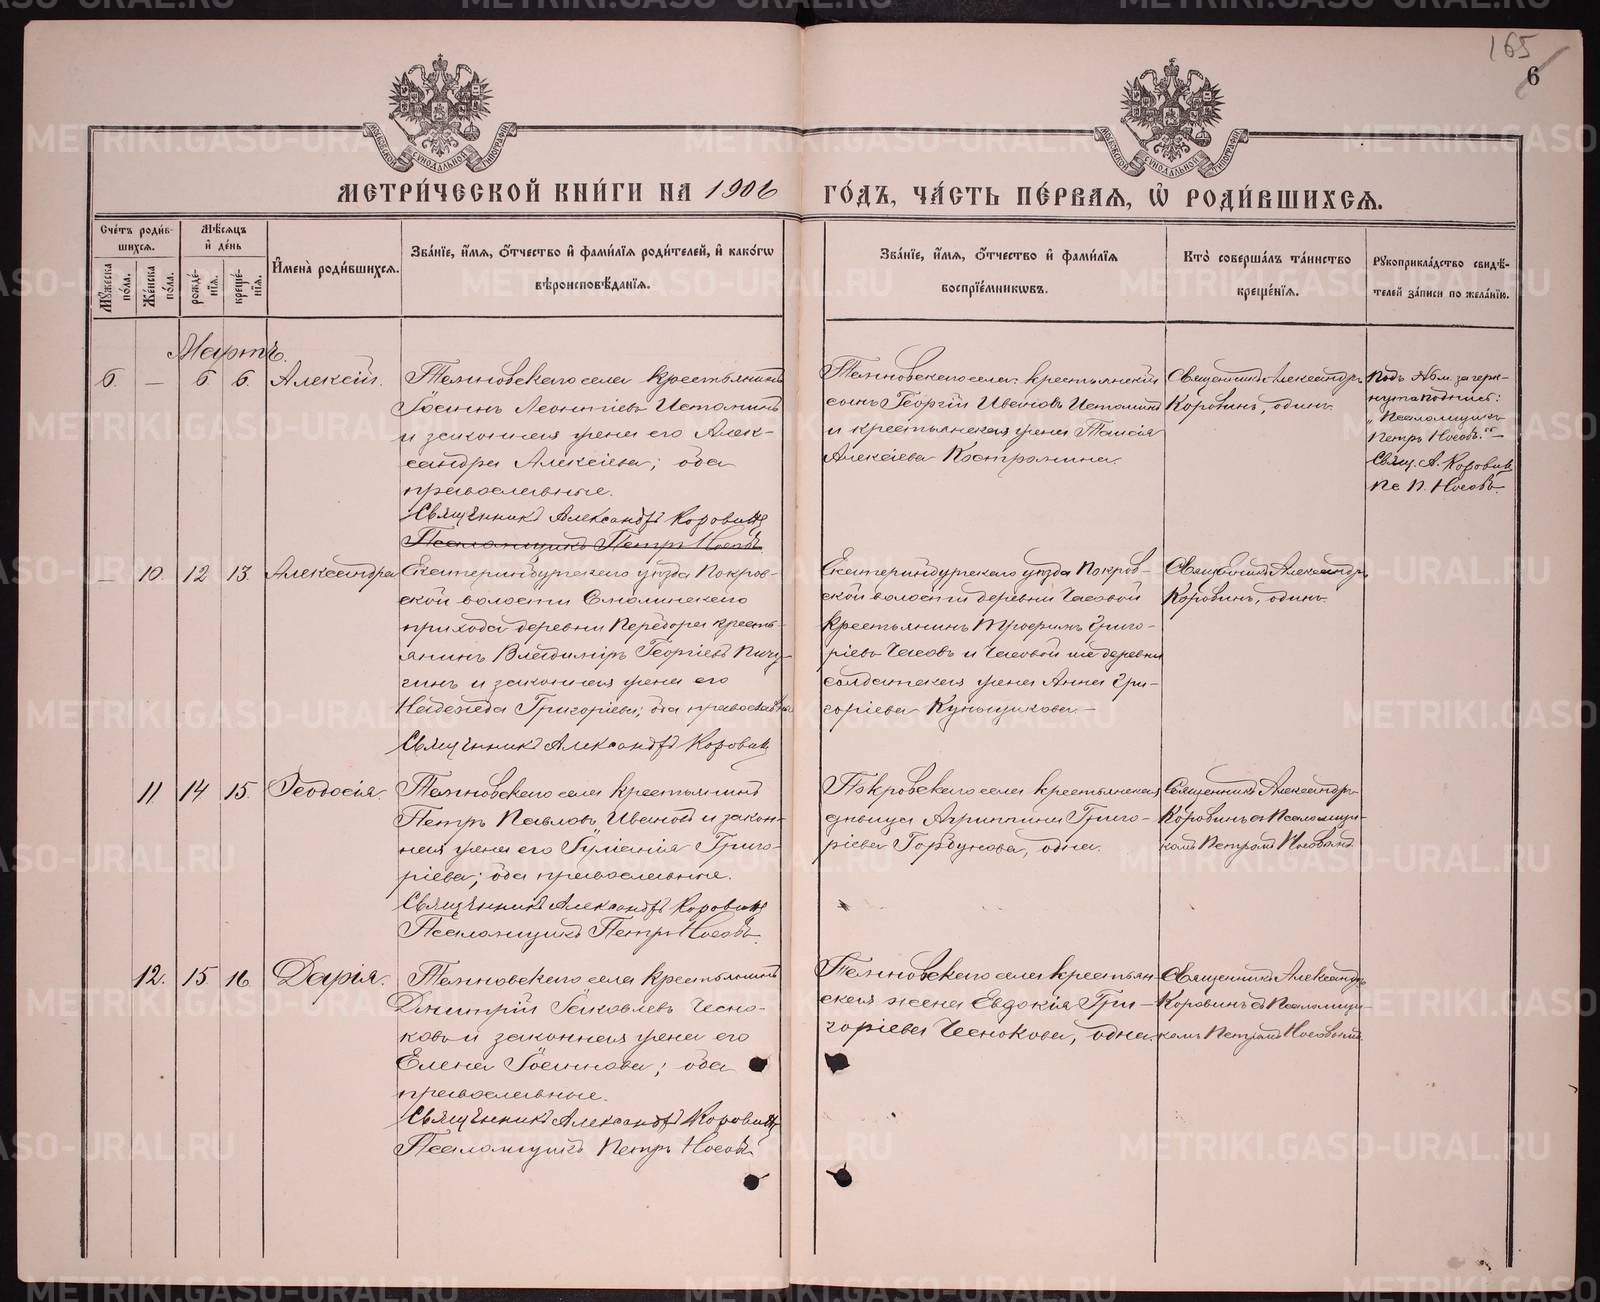 165
6
МОСКОВСКОЙ СѴНОДАЛЬНОЙ ТИПОГРАФІИ
МОСКОВСКОЙ СѴНОДАЛЬНОЙ ТИПОГРАФІИ
МЕТРИ́ЧЕСКОЙ КНИ́ГИ НА 1906 ГО́ДЪ, ЧА́СТЬ ПЕ́РВАЯ, Ѡ҆ РОДИ́ВШИХСЯ.
Сче́тъ роди́вшихся.
Мꙋ́жеска по́ла.
Же́нска по́ла.
Мѣ́сяцъ и҆ де́нь
рожде́нїѧ.
креще́нїѧ.
И҆мена̀ роди́вшихсѧ.
Зва́нїе, и҆́мѧ, ѻ҆́тчество и҆ фами́лїѧ роди́телей, и҆ како́гѡ
вѣроисповѣ́данїѧ.
Зва́нїе, и҆́мѧ, ѻ҆́тчество и҆ фами́лїѧ
воспрїе́мникѡвъ.
Кто̀ соверша́лъ та́инство
креще́нїѧ.
Рꙋкоприкла́дство свидѣ́-
телей за́писи по жела́нїю.
Мартъ.
6. — 6 6. Алексій.
Темновскаго села крестьянинъ
Іоаннъ Леонтіевъ Истоминъ
и законная жена его Алек-
сандра Алексіева; оба
православные.
Священникъ Александръ Коровинъ
Псаломщикъ Петръ Носовъ
Темновскаго села крестьянскій
сынъ Георгій Ивановъ Истоминъ
и крестьянская жена Таисія
Алексіева Костромина.
Священникъ Александръ
Коровинъ, одинъ.
Подъ №6м. зачерк-
нута подпись:
„Псаломщикъ
Петръ Носовъ.“—
Свящ. А. Коровинъ
Пс. П. Носовъ.
— 10. 12 13. Александра
Екатеринбургскаго уѣзда Покров-
ской волости Смолинскаго
прихода деревни Перебора кресть-
янинъ Владиміръ Георгіевъ Пичу-
гинъ и законная жена его
Надежда Григоріева; оба православны
Священникъ Александръ Коровинъ
Екатеринбургскаго уѣзда Покров-
ской волости деревни Часовой
крестьянинъ Трофимъ Григо-
ріевъ Часовъ и Часовой же деревни
солдатская жена Анна Гри-
горіева Куныщикова.—
Священникъ Александръ
Коровинъ, одинъ.
11. 14 15. Ѳеодосія.
Темновскаго села крестьянинъ
Петръ Павловъ Ивановъ и закон-
ная жена его Іуліанія Григо-
ріева; оба православные.
Священникъ Александръ Коровинъ
Псаломщикъ Петръ Носовъ.
Покровскаго села крестьянская
дѣвица Агриппина Григо-
ріева Горбунова, одна.
Священникъ Александръ
Коровинъ съ Псаломщи-
комъ Петромъ Носовымъ.
12. 15 16 Дарія.
Темновскаго села крестьянинъ
Димитрій Іаковлевъ Чесно-
ковъ и законная жена его
Елена Іоаннова; оба
православные.
Священникъ Александръ Коровинъ
Псаломщикъ Петръ Носовъ
Темновскаго села крестьян-
ская жена Евдокія Гри-
горіева Чеснокова, одна.
Священникъ Александръ
Коровинъ съ Псаломщи-
комъ Петромъ Носовымъ.
METRIKI.GASO-URAL.RU